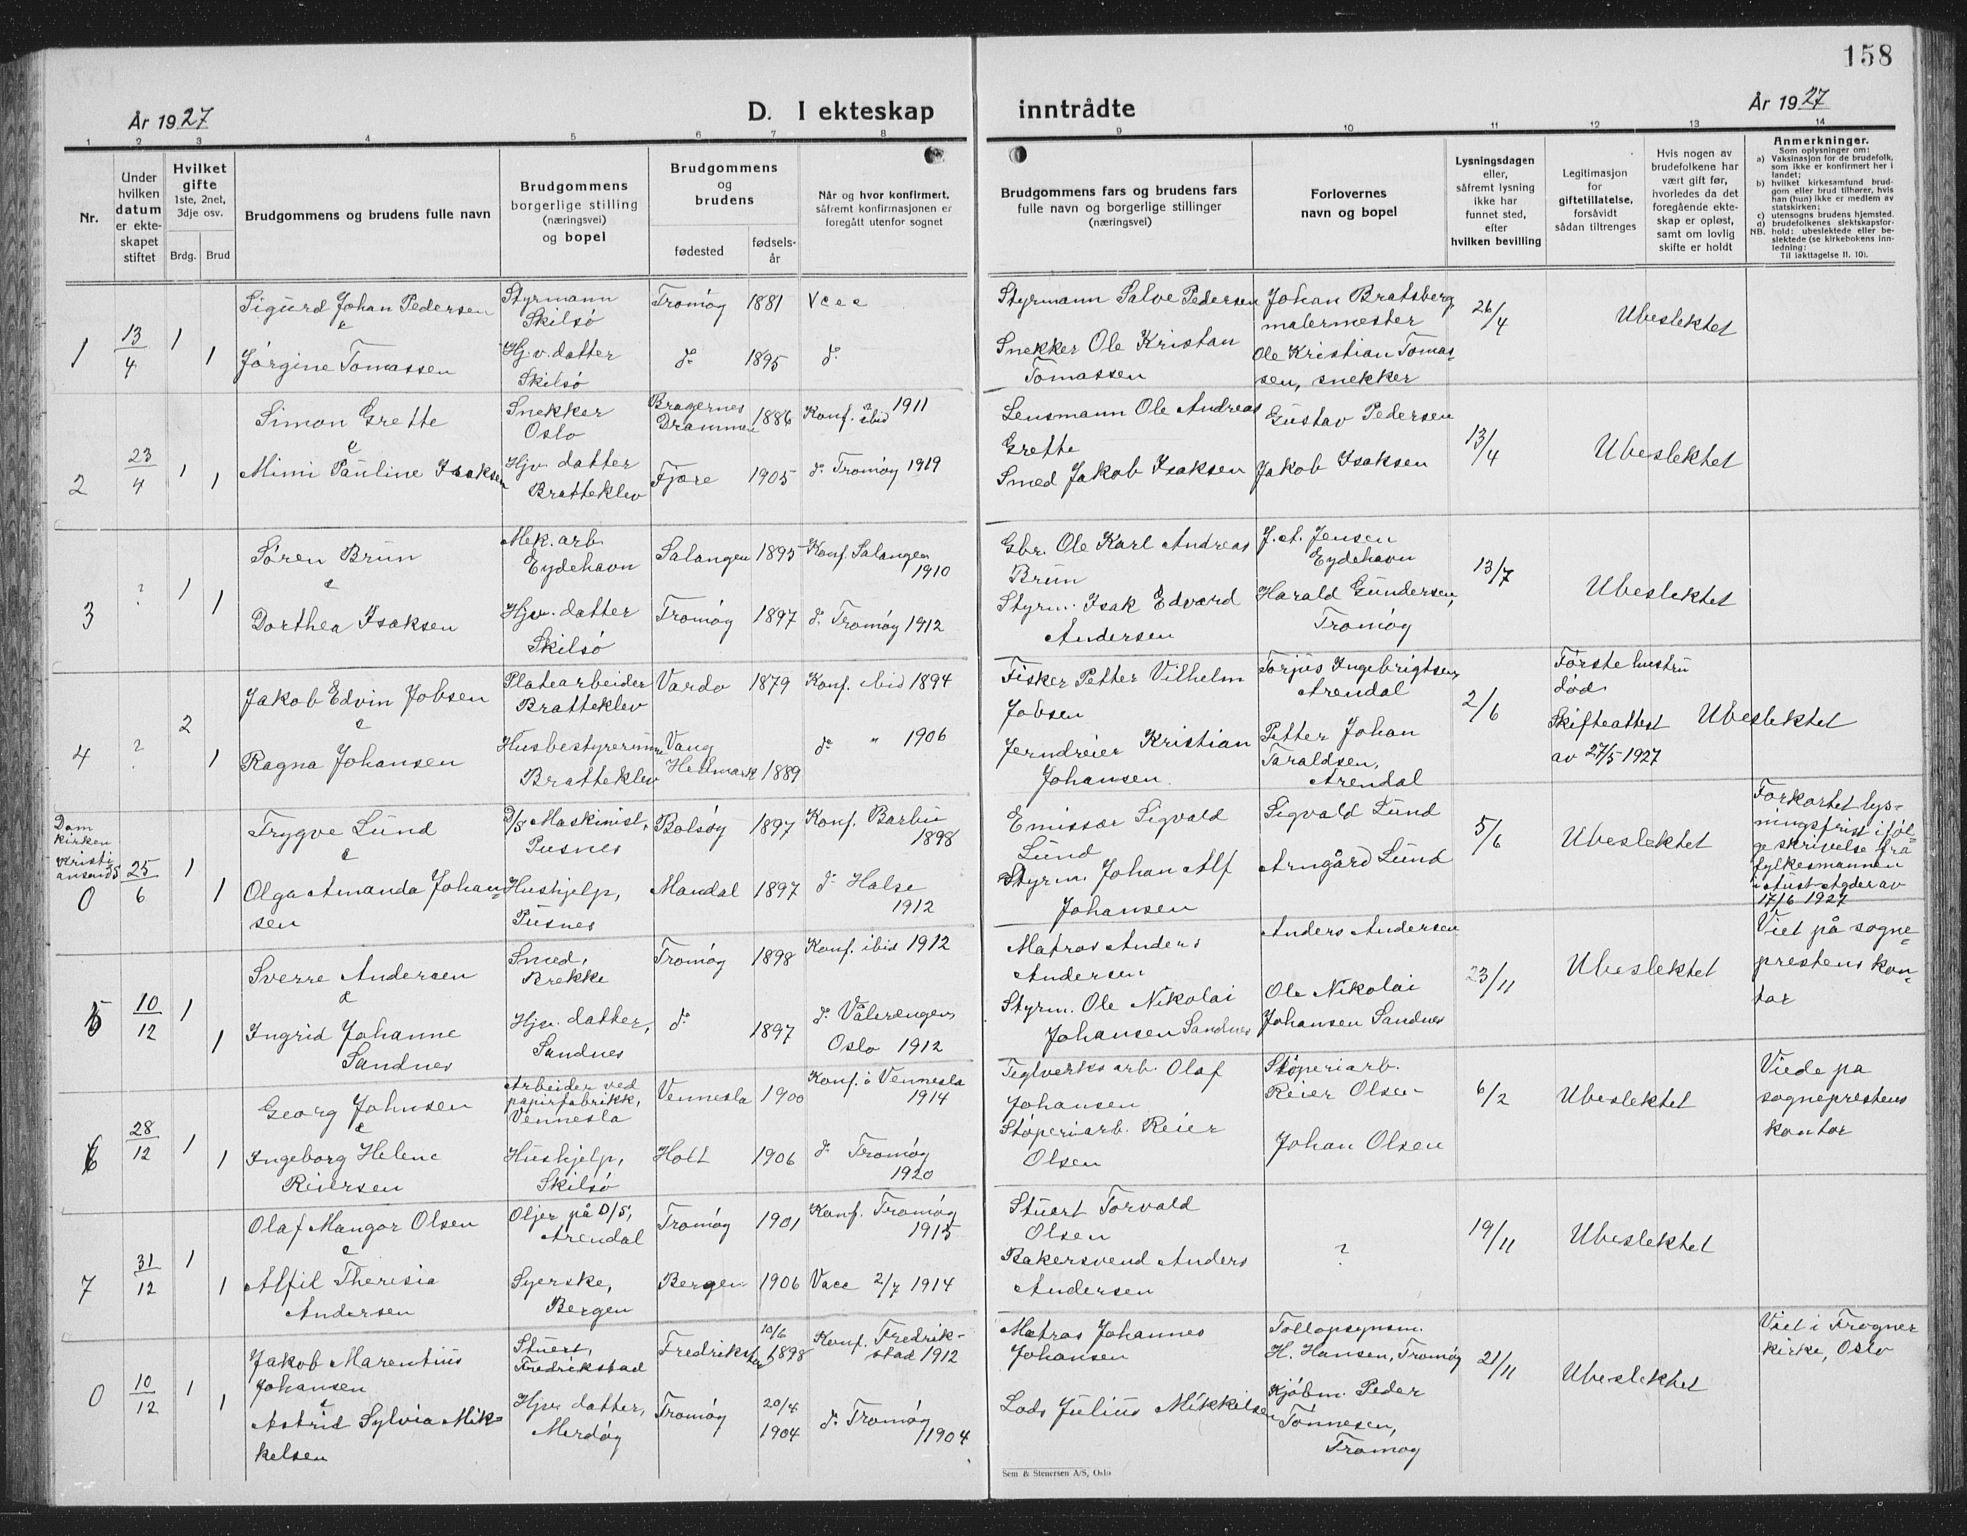 158
År 1927
D. I ekteskap inntrådte
År 1927
1 2 3 4 5 6 7 8 9 10 11 12 13 14
Nr.
Under hvilken datum er ekteskapet stiftet
Hvilket gifte 1ste, 2net, 3dje osv.
Brdg. Brud
Brudgommens og brudens fulle navn
Brudgommens borgerlige stilling (næringsvei) og bopel
Brudgommens og brudens
fødested
fødselsår
Når og hvor konfirmert, såfremt konfirmasjonen er foregått utenfor sognet
Brudgommens fars og brudens fars fulle navn og borgerlige stillinger (næringsvei)
Forlovernes navn og bopel
Lysningsdagen eller, såfremt lysning ikke har funnet sted, efter hvilken bevilling
Legitimasjon for giftetillatelse, forsåvidt sådan tiltrenges
Hvis nogen av brudefolkene har vært gift før, hvorledes da det foregående ekteskap er opløst, samt om lovlig skifte er holdt
Anmerkninger.
Som oplysninger om:
a) Vaksinasjon for de brudefolk, som ikke er konfirmert her i landet;
b) hvilket kirkesamfund brudgom eller brud tilhører, hvis han (hun) ikke er medlem av statskirken;
c) utensogns brudens hjemsted.
d) brudefolkenes slektskapsforhold: ubeslektede eller beslektede (se kirkebokens innledning:
NB.
Til iakttagelse II, 10).
1 13/4 1 Sigurd Johan Pedersen Styrmann Skilsø Tromøy 1881 Vacc Styrmann Salve Pedersen Johan Bratsberg malermester 26/4 Ubeslektet
&
1 Jørgine Tomassen Hj.v. datter Skilsø d° 1895 d° Snekker Ole Kristan Tomassen Ole Kristian Tomassen, snekker
2 23/4 1 Simon Grette Snekker Oslo Bragernes Drammen 1886 Konf. ibid 1911 Lensmann Ole Andreas Grette Gustav Pedersen 13/4 Ubeslektet
&
1 Mimi Pauline Isaksen Hjv. datter Bratteklev Fjære 1905 d° Tromøy 1919 Smed Jakob Isaksen Jakob Isaksen
3 ? 1 Søren Brun Mek. arb. Eydehavn Salangen 1895 Konf. Salangen 1910 Gbr. Ole Karl Andreas Brun J. A. Jensen Eydehavn 13/7 Ubeslektet
&
1 Dorthea Isaksen Hjv. datter Skilsø Tromøy 1897 d° Tromøy 1912 Styrm. Isak Edvard Andersen Harald Gundersen, Tromøy
4 ? 2 Jakob Edvin Jobsen Platearbeider Bratteklev Vardø 1879 Konf. ibid 1894 Fisker Petter Vilhelm Jobsen Torjus Ingebrigtsen Arendal 2/6 Første hustru død Skifteattest av 27/5 1927 Ubeslektet
&
1 Ragna Johansen Husbestyrerinne Bratteklev Vang Hedmark 1889 d° " 1906 Jerndreier Kristian Johansen Petter Johan Taraldsen, Arendal
Domkirken Kristiansand S
0 25/6 1 Trygve Lund D/S Maskinist, Pusnes Bolsøy 1897 Konf. Barbu 1898 Emissær Sigvald Lund Sigvald Lund 5/6 Ubeslektet Forkortet lysningsfrist ifølge skrivelse fra fylkesmannen i Aust-Agder av 17/6 1927
&
1 Olga Amanda Johansen Hushjelp, Pusnes Mandal 1897 d° Halse 1912 Styrm. Johan Alf Johansen Arngård Lund
5 10/12 1 Sverre Andersen Smed, Brekke Tromøy 1898 Konf. ibid 1912 Matros Anders Andersen Anders Andersen 23/11 Ubeslektet Viet på sogneprestens kontor
&
1 Ingrid Johanne Sandnes Hjv. datter, Sandnes d° 1897 d° Vålerengen Oslo 1912 Styrm. Ole Nikolai Johansen Sandnes Ole Nikolai Johansen Sandnes
6 28/12 1 Georg Johnsen Arbeider ved papirfabrikk, Vennesla Vennesla 1900 Konf. i Vennesla 1914 Teglverksarb. Olaf Johansen Støperiarb. Reier Olsen 6/2 Ubeslektet Viede på sogneprestens kontor
&
1 Ingeborg Helene Reiersen Hushjelp, Skilsø Holt 1906 d° Tromøy 1920 Støperiarb. Reier Olsen Johan Olsen
7 31/12 1 Olaf Mangor Olsen Oljer på D/S, Arendal Tromøy 1901 Konf. Tromøy 1915 Stuert Torvald Olsen ? 19/11 Ubeslektet
&
1 Alfil Theresia Andersen Syerske, Bergen Bergen 1906 Vacc 2/7 1914 Bakersvend Anders Andersen
0 10/12 1 Jakob Marentius Johansen Stuert, Fredrikstad Fredrikstad 10/6 1898 Konf. Fredrikstad 1912 Matros Johannes Johansen Tollopsynsm. H. Hansen, Tromøy 21/11 Ubeslektet Viet i Frogner kirke, Oslo
&
1 Astrid Sylvia Mikkelsen Hjv. datter, Merdøy Tromøy 20/4 1904 d° Tromøy 1904 Lods Julius Mikkelsen Kjøbm. Peder Tønnesen, Tromøy
Sem & Stenersen A/S, Oslo